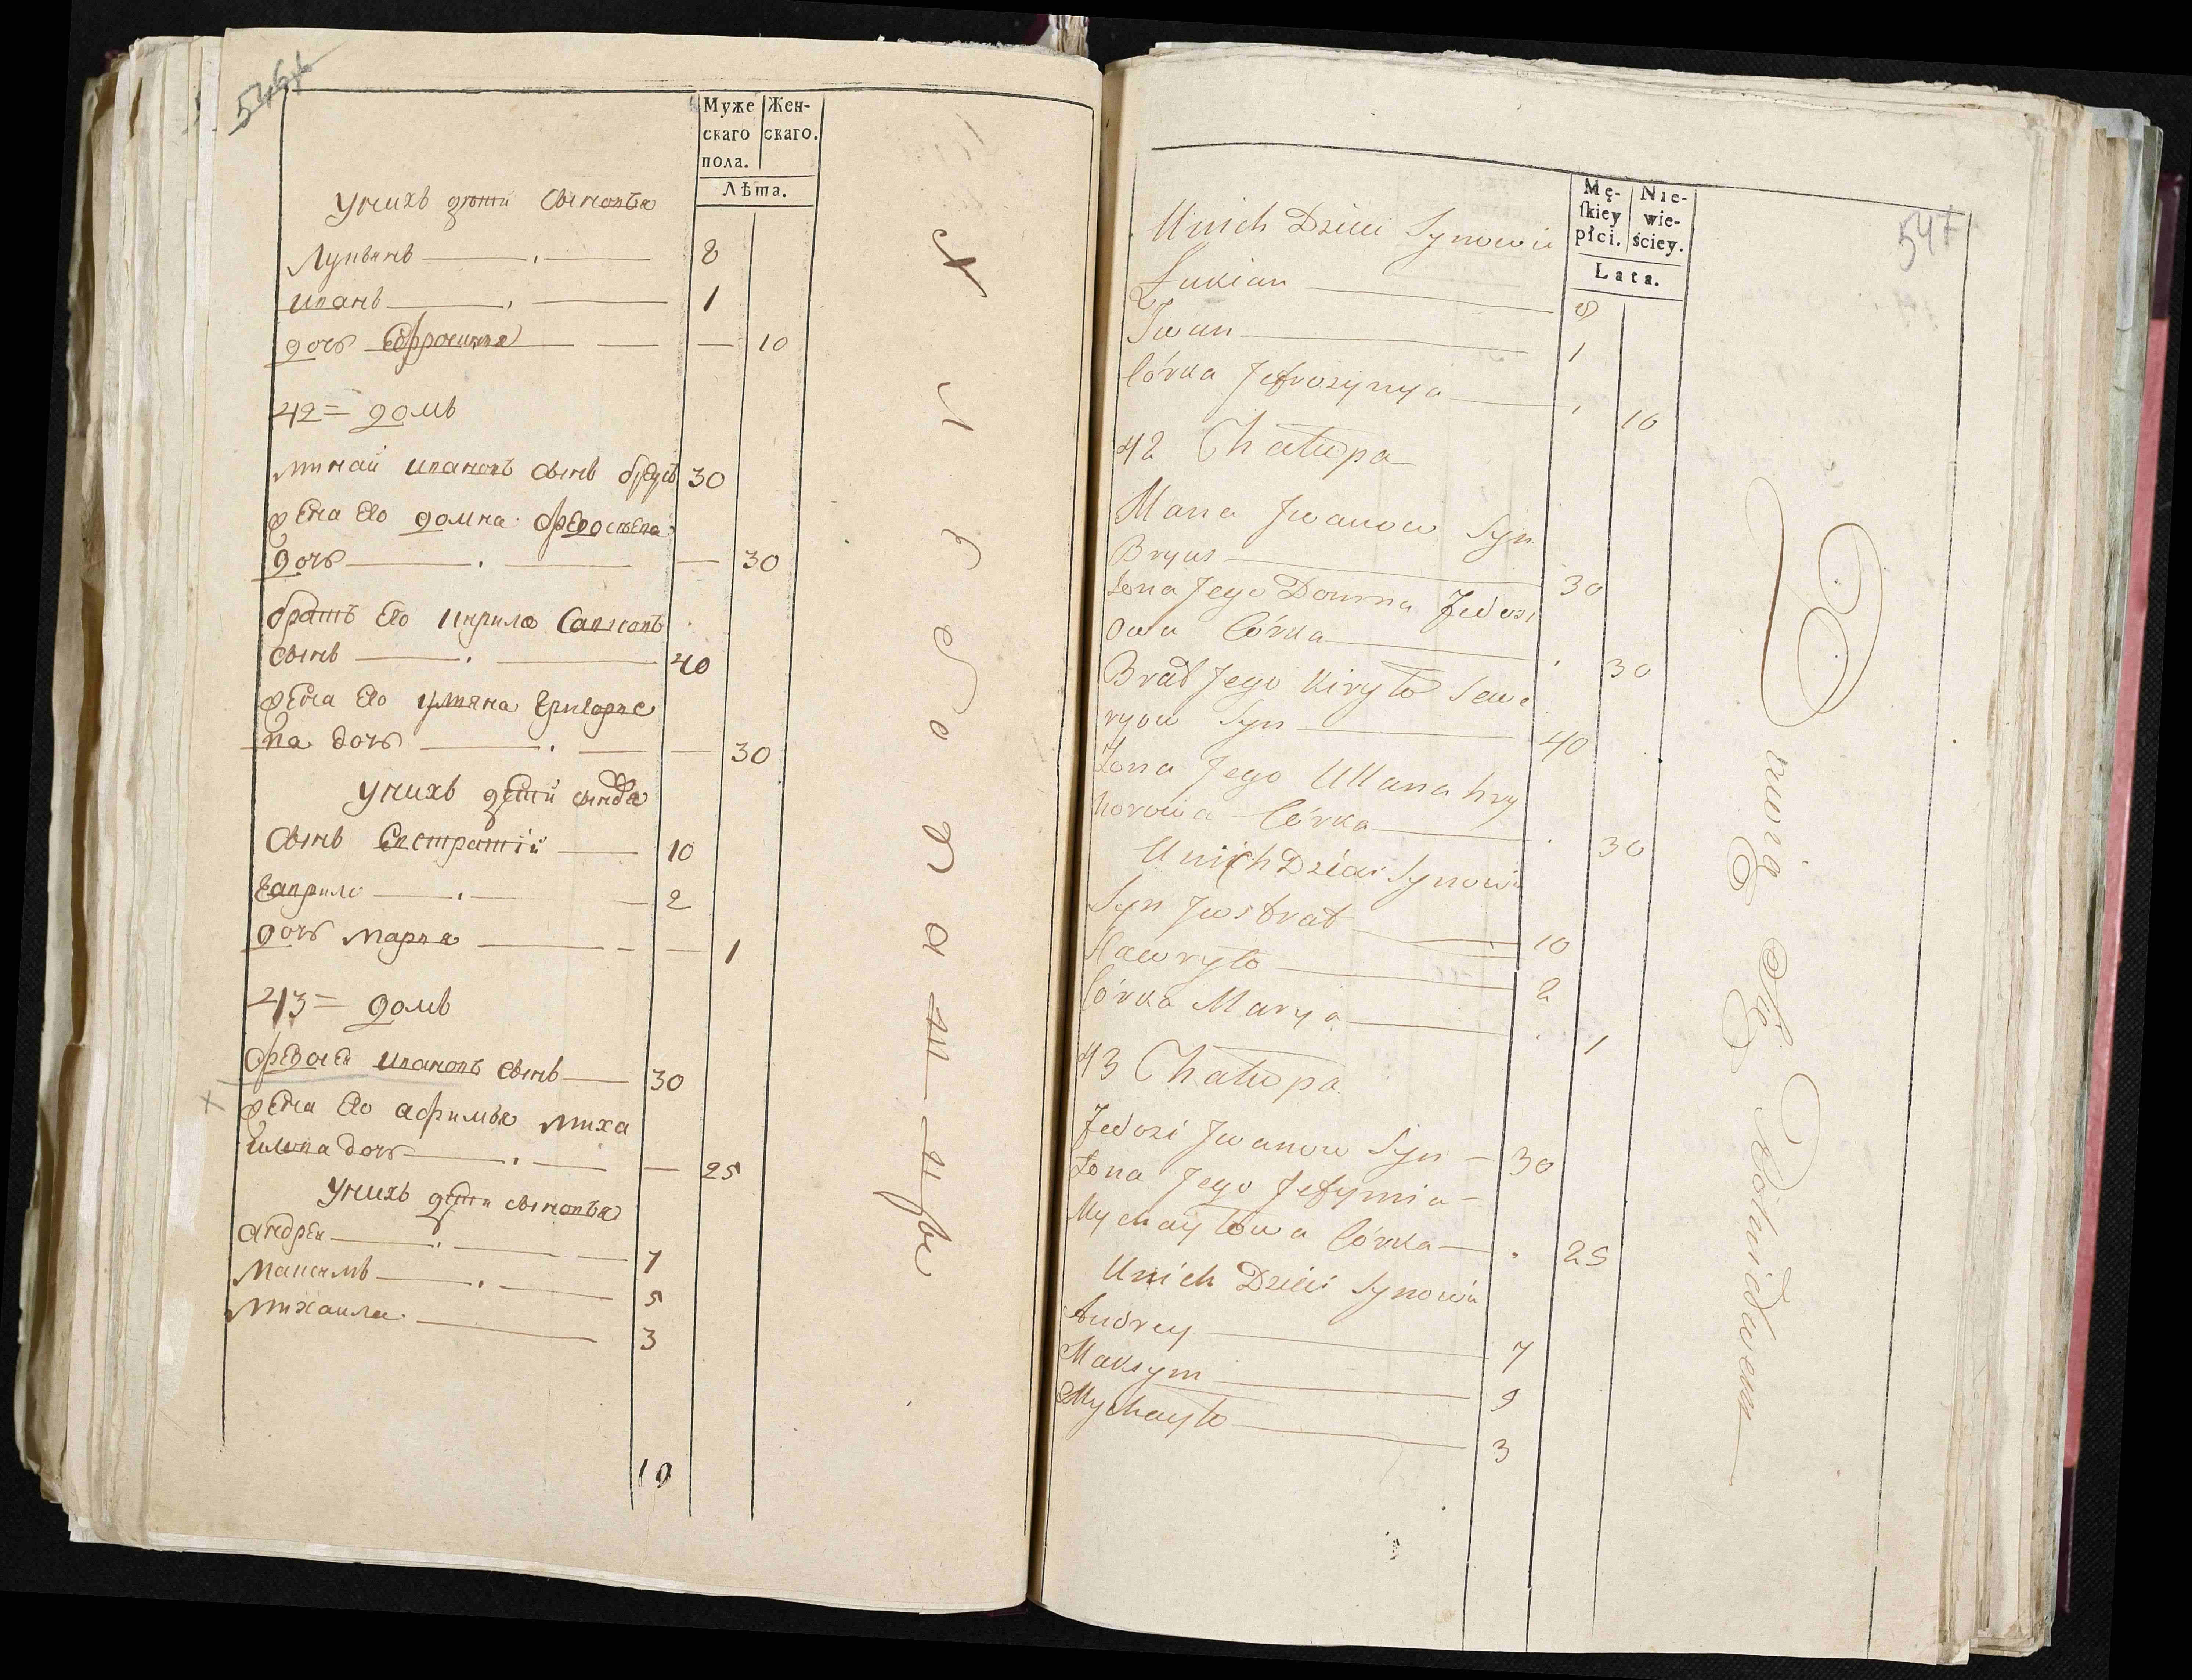 546
Муже
скаго
пола.
Жен-
скаго.
Лѣта.
Унихъ детй Сыновья
Лукьянъ 8
иванъ 1
дочь Ефросинья — 10
42= домъ
минай ивановъ сынъ 30
жена его домна федосѣева
дочь — 30
братъ его кирило
сынъ 40
жена его уляна григорие
ва дочь — 30
Унихъ детй
Сынъ Евстратiй 10
гаврило 2
дочь марья — 1
43= домъ
федосеи ивановъ сынъ 30
жена его афимья миха
илова дочь — 25
Унихъ дети сыновья
андреи 7
максимъ 5
михаила 3
10
547
Mę-
ſkiey
płci.
Nie-
wie-
ściey.
Lata.
Unich Dzieci Synowie
Lukian 8
Jwan 1
Córka Jefrozynya 10
42 Chałupa
Mana Jwanow Syn
Bryus 30
Zona Jego Domna Fedosi
owa Córka 30
Brat Jego Kiryło Sawe
ryow Syn 40
Zona Jego Ullana hry
horowa Córka 30
Unich Dzieci Synowie
Syn Jwstrat 10
Hawryło 2
Córka Marya 1
43 Chałupa
Fedosi Jwanow Syn — 30
Zona Jego Jefymia -
Mychayłowa Córka 25
Unich Dzieci Synowie
Andrey 7
Maksym 5
Mychayło 3